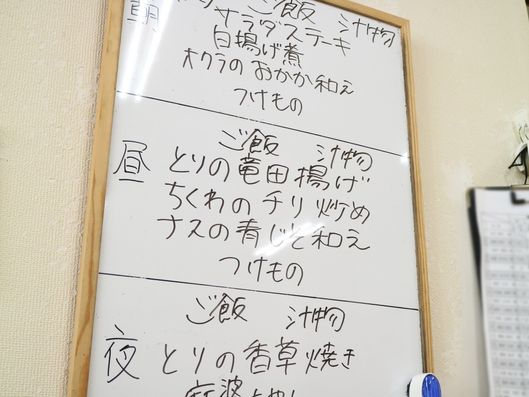 朝 ご飯 汁物
サラダステーキ
白揚げ煮
オクラのおかか和え
つけもの
ご飯 汁物
昼 とりの竜田揚げ
ちくわのチリ炒め
ナスの青じそ和え
つけもの
ご飯 汁物
夜 とりの香草焼き
麻波